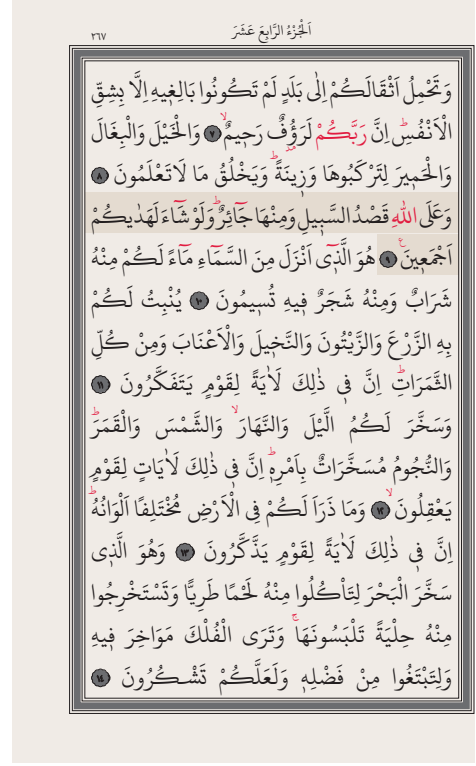 اَلْجُزْءُ الرَّابِعَ عَشَرَ
٢٦٧
وَتَحْمِلُ اَثْقَالَكُمْ اِلٰى بَلَدٍ لَمْ تَكُونُوا بَالِغٖيهِ اِلَّا بِشِقِّ
الْاَنْفُسِؕ اِنَّ رَبَّكُمْ لَرَؤُفٌ رَحٖيمٌۙ ٧ وَالْخَيْلَ وَالْبِغَالَ
وَالْحَمٖيرَ لِتَرْكَبُوهَا وَزٖينَةًؕ وَيَخْلُقُ مَا لَاتَعْلَمُونَ ٨
وَعَلَى اللّٰهِ قَصْدُ السَّبٖيلِ وَمِنْهَا جَٓائِرٌؕ وَلَوْ شَٓاءَ لَهَدٰيكُمْ
اَجْمَعٖينَࣖ ٩ هُوَ الَّذٖٓى اَنْزَلَ مِنَ السَّمَٓاءِ مَٓاءً لَكُمْ مِنْهُ
شَرَابٌ وَمِنْهُ شَجَرٌ فٖيهِ تُسٖيمُونَ ١٠ يُنْبِتُ لَكُمْ
بِهِ الزَّرْعَ وَالزَّيْتُونَ وَالنَّخٖيلَ وَالْاَعْنَابَ وَمِنْ كُلِّ
الثَّمَرَاتِؕ اِنَّ فٖى ذٰلِكَ لَاٰيَةً لِقَوْمٍ يَتَفَكَّرُونَ ١١
وَسَخَّرَ لَكُمُ الَّيْلَ وَالنَّهَارَۙ وَالشَّمْسَ وَالْقَمَرَؕ
وَالنُّجُومُ مُسَخَّرَاتٌ بِاَمْرِهٖؕ اِنَّ فٖى ذٰلِكَ لَاٰيَاتٍ لِقَوْمٍ
يَعْقِلُونَۙ ١٢ وَمَا ذَرَاَ لَكُمْ فِى الْاَرْضِ مُخْتَلِفًا اَلْوَانُهُؕ
اِنَّ فٖى ذٰلِكَ لَاٰيَةً لِقَوْمٍ يَذَّكَّرُونَ ١٣ وَهُوَ الَّذٖى
سَخَّرَ الْبَحْرَ لِتَاْكُلُوا مِنْهُ لَحْمًا طَرِيًّا وَتَسْتَخْرِجُوا
مِنْهُ حِلْيَةً تَلْبَسُونَهَاۚ وَتَرَى الْفُلْكَ مَوَاخِرَ فٖيهِ
وَلِتَبْتَغُوا مِنْ فَضْلِهٖ وَلَعَلَّكُمْ تَشْكُرُونَ ١٤